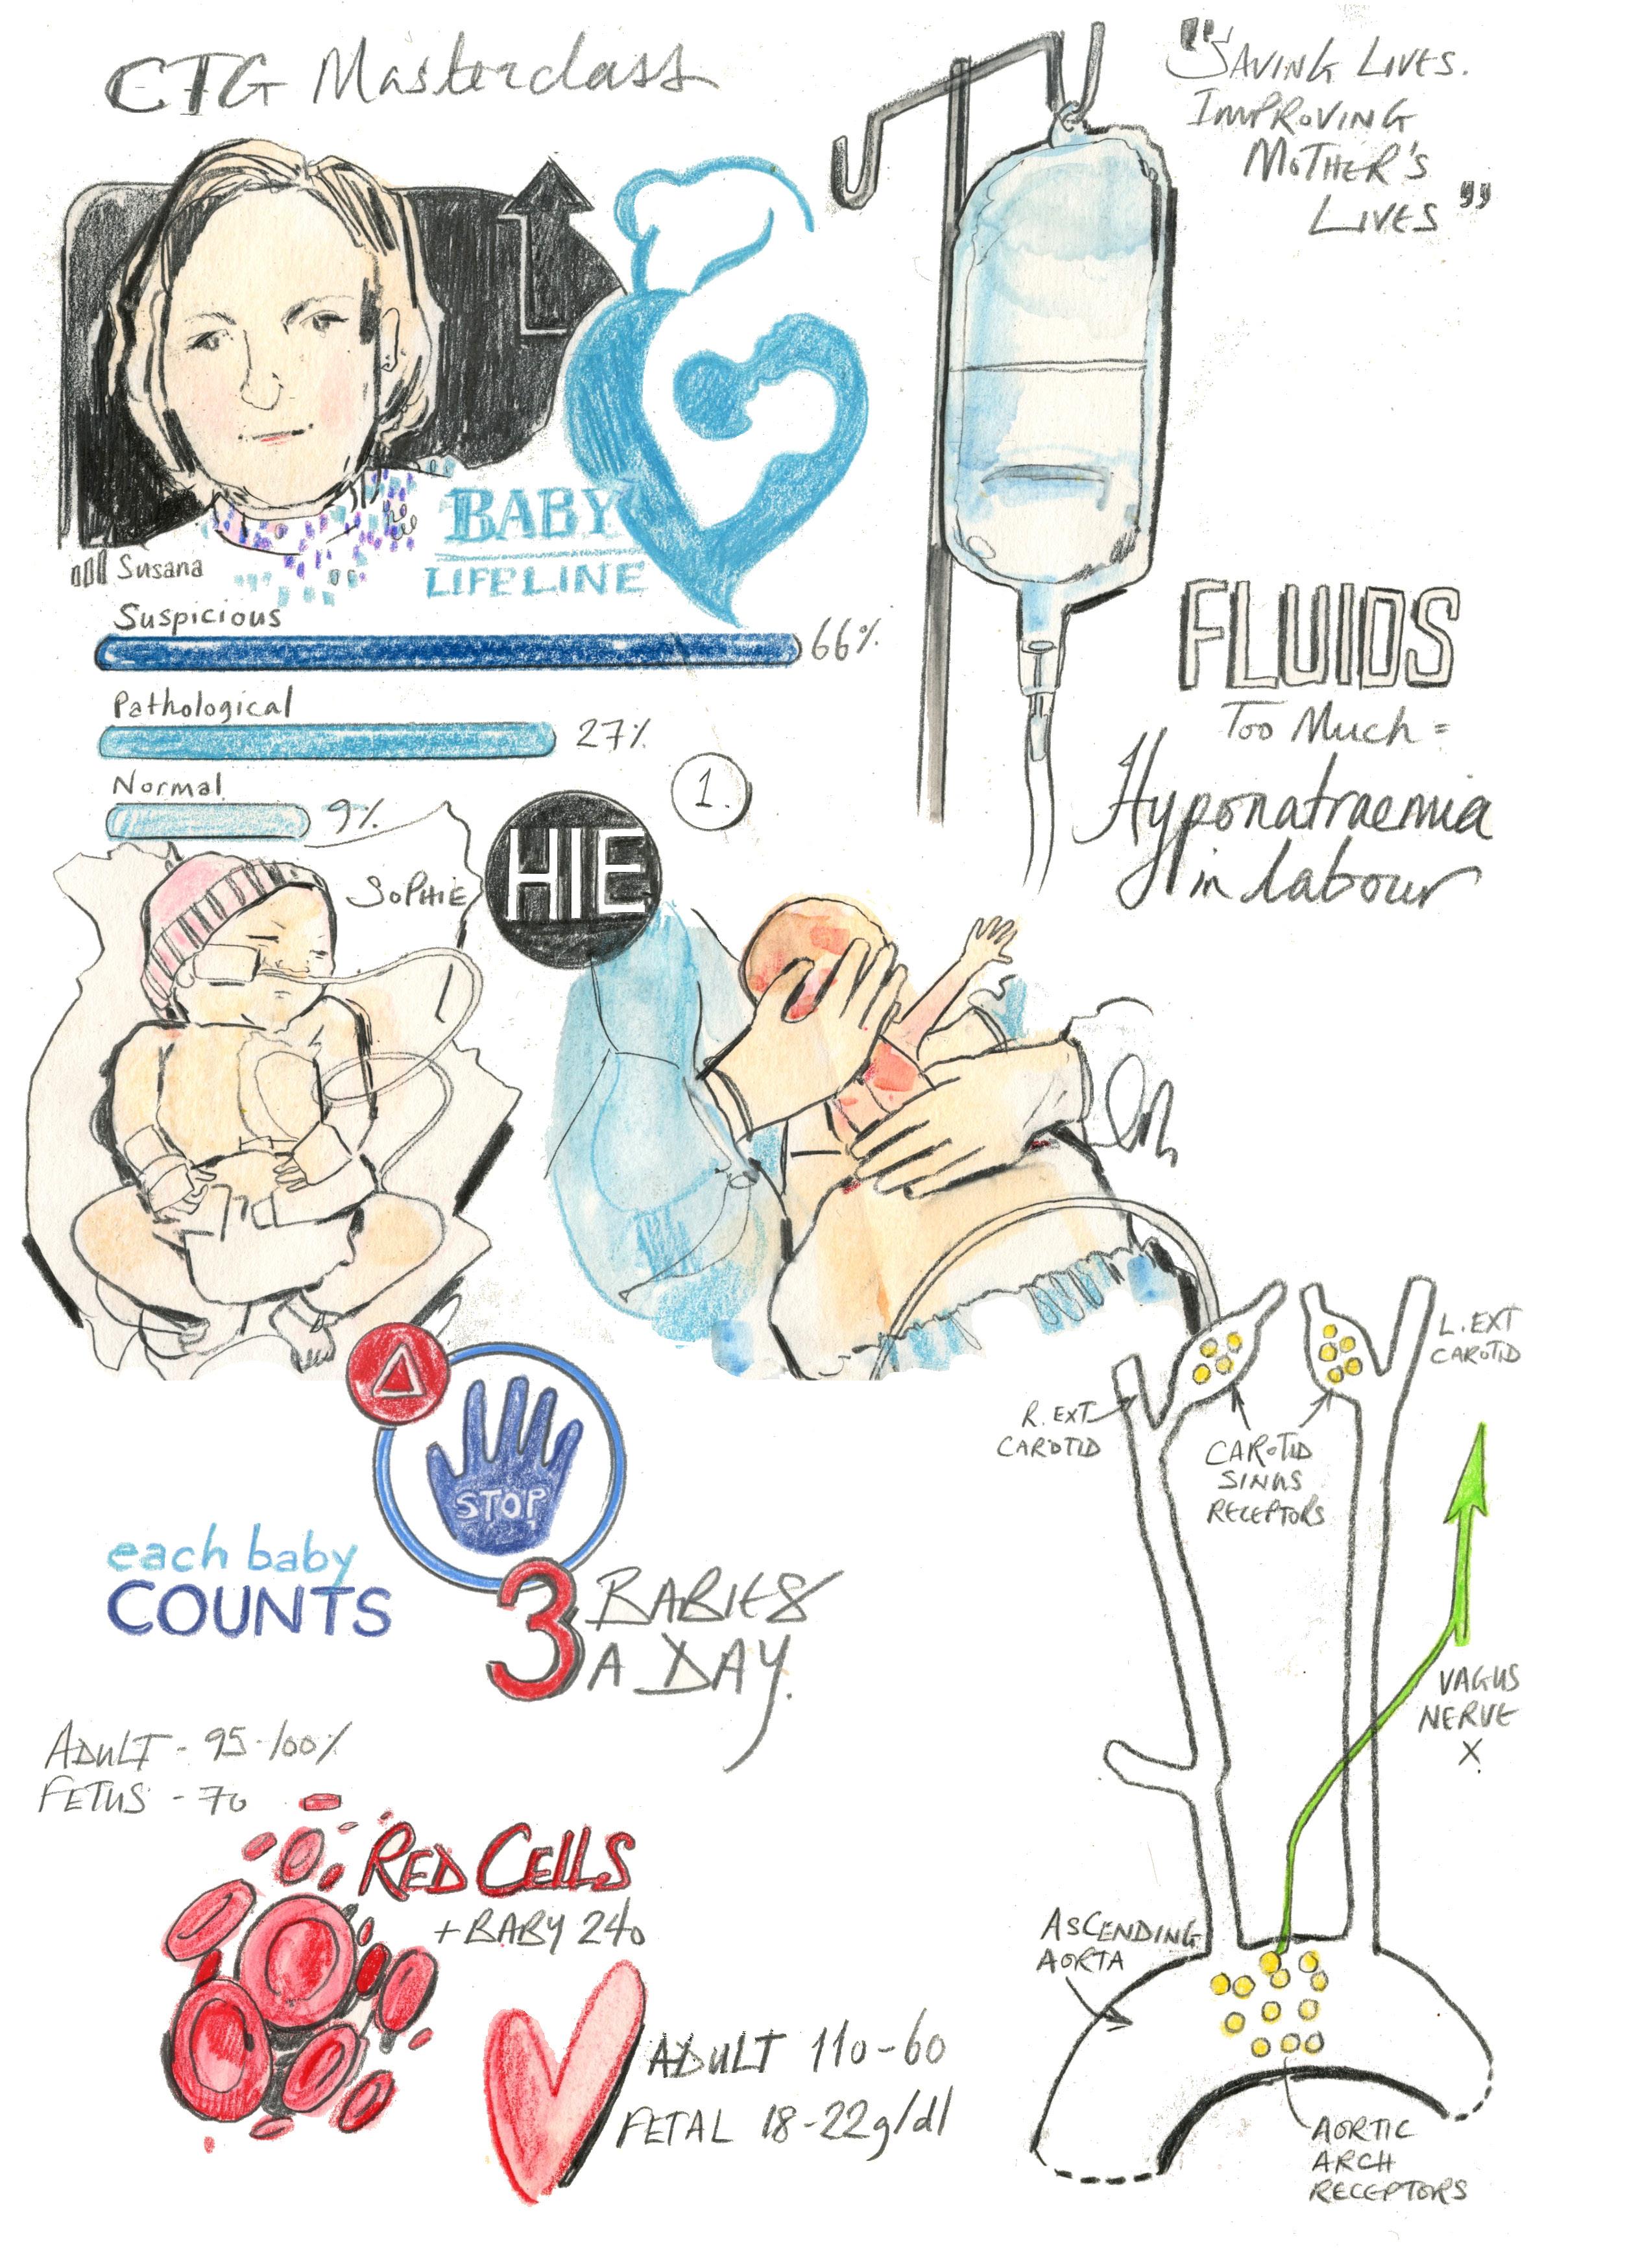 CTG Masterclass
"SAVING LIVES.
IMPROVING
MOTHER'S
LIVES"
BABY
LIFELINE
Susana
Suspicious
66%
Pathological
27%
Normal
9%
FLUIDS
Too Much =
Hyponatraemia
in labour
1.
HIE
SOPHIE
STOP
each baby
COUNTS
3 BABIES
A DAY.
L. EXT
CAROTID
R. EXT
CAROTID
CAROTID
SINUS
RECEPTORS
VAGUS
NERVE
X
ADULT - 95-100%
FETUS - 70
RED CELLS
+ BABY 240
ADULT 110-60
FETAL 18-22g/dl
ASCENDING
AORTA
AORTIC
ARCH
RECEPTORS